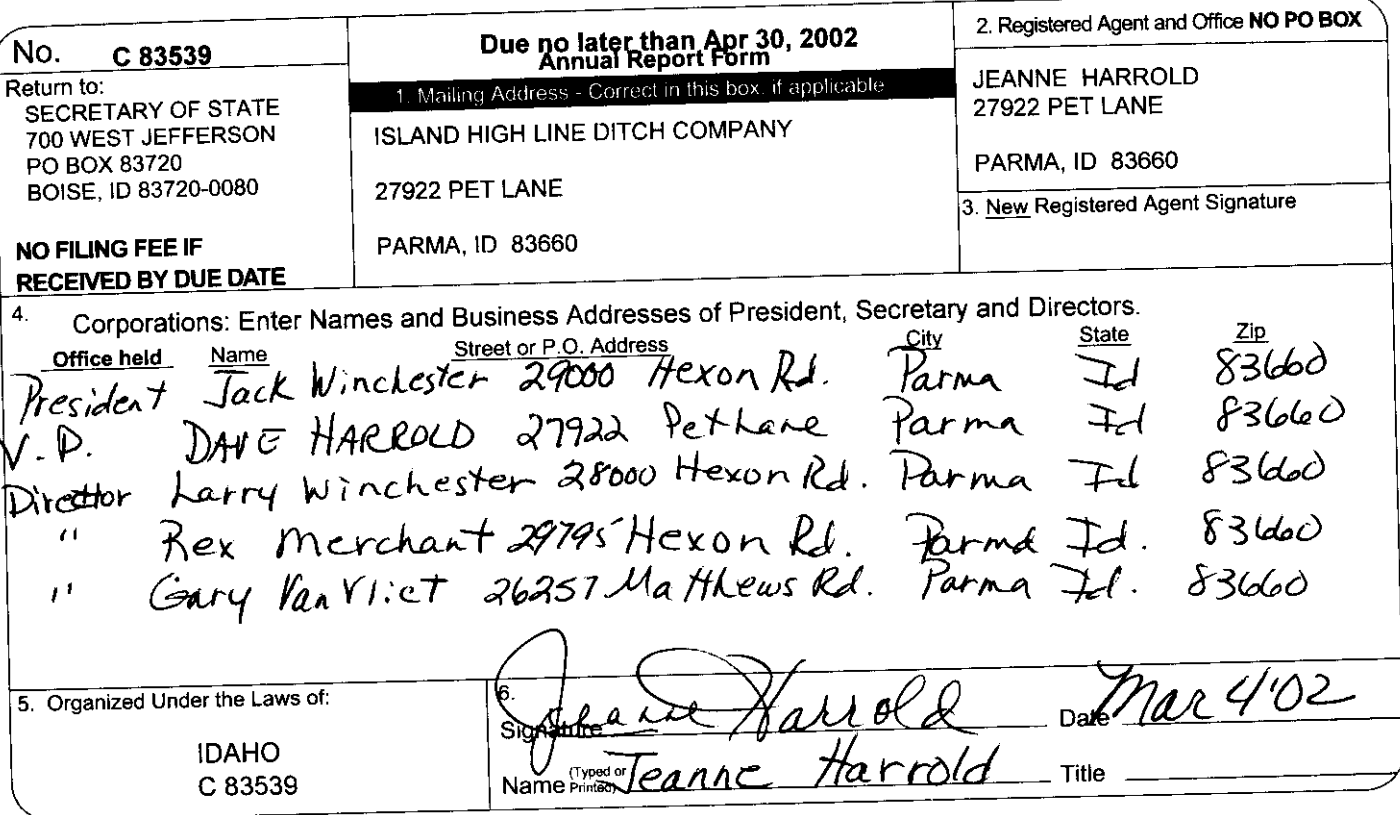 No. C 83539
Return to:
SECRETARY OF STATE
700 WEST JEFFERSON
PO BOX 83720
BOISE, ID 83720-0080
NO FILING FEE IF
RECEIVED BY DUE DATE
Due no later than Apr 30, 2002
Annual Report Form
1. Mailing Address - Correct in this box, if applicable
ISLAND HIGH LINE DITCH COMPANY
27922 PET LANE
PARMA, ID 83660
2. Registered Agent and Office NO PO BOX
JEANNE HARROLD
27922 PET LANE
PARMA, ID 83660
3. New Registered Agent Signature
4. Corporations: Enter Names and Business Addresses of President, Secretary and Directors.
Office held Name Street or P.O. Address City State Zip
President Jack Winchester 29000 Hexon Rd. Parma Id 83660
V.P. DAVE HARROLD 27922 Pet Lane Parma Id 83660
Director Larry Winchester 28000 Hexon Rd. Parma Id 83660
" Rex Merchant 29795 Hexon Rd. Parma Id. 83660
" Gary Van Vliet 26257 Matthews Rd. Parma Id. 83660
5. Organized Under the Laws of:
IDAHO
C 83539
6.
Signature Jeanne Harrold Date Mar 4 '02
Name (Typed or Printed) Jeanne Harrold Title